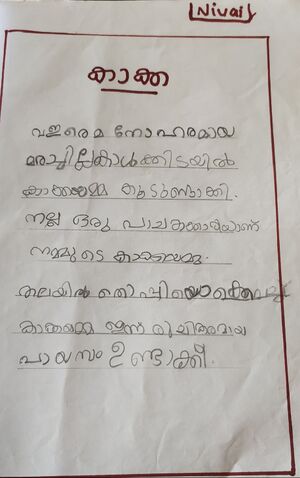 Nivaij
കാക്ക
വളരെ മനോഹരമായ
മരച്ചില്ലകൾക്കിടയിൽ
കാക്കമ്മ കൂടുണ്ടാക്കി.
നല്ല ഒരു പാചകക്കാരിയാണ്
നമ്മുടെ കാക്കമ്മ.
തലയിൽ തൊപ്പി
കാക്കമ്മ ഇന്ന് രുചികരമായ
പായസം ഉണ്ടാക്കി.